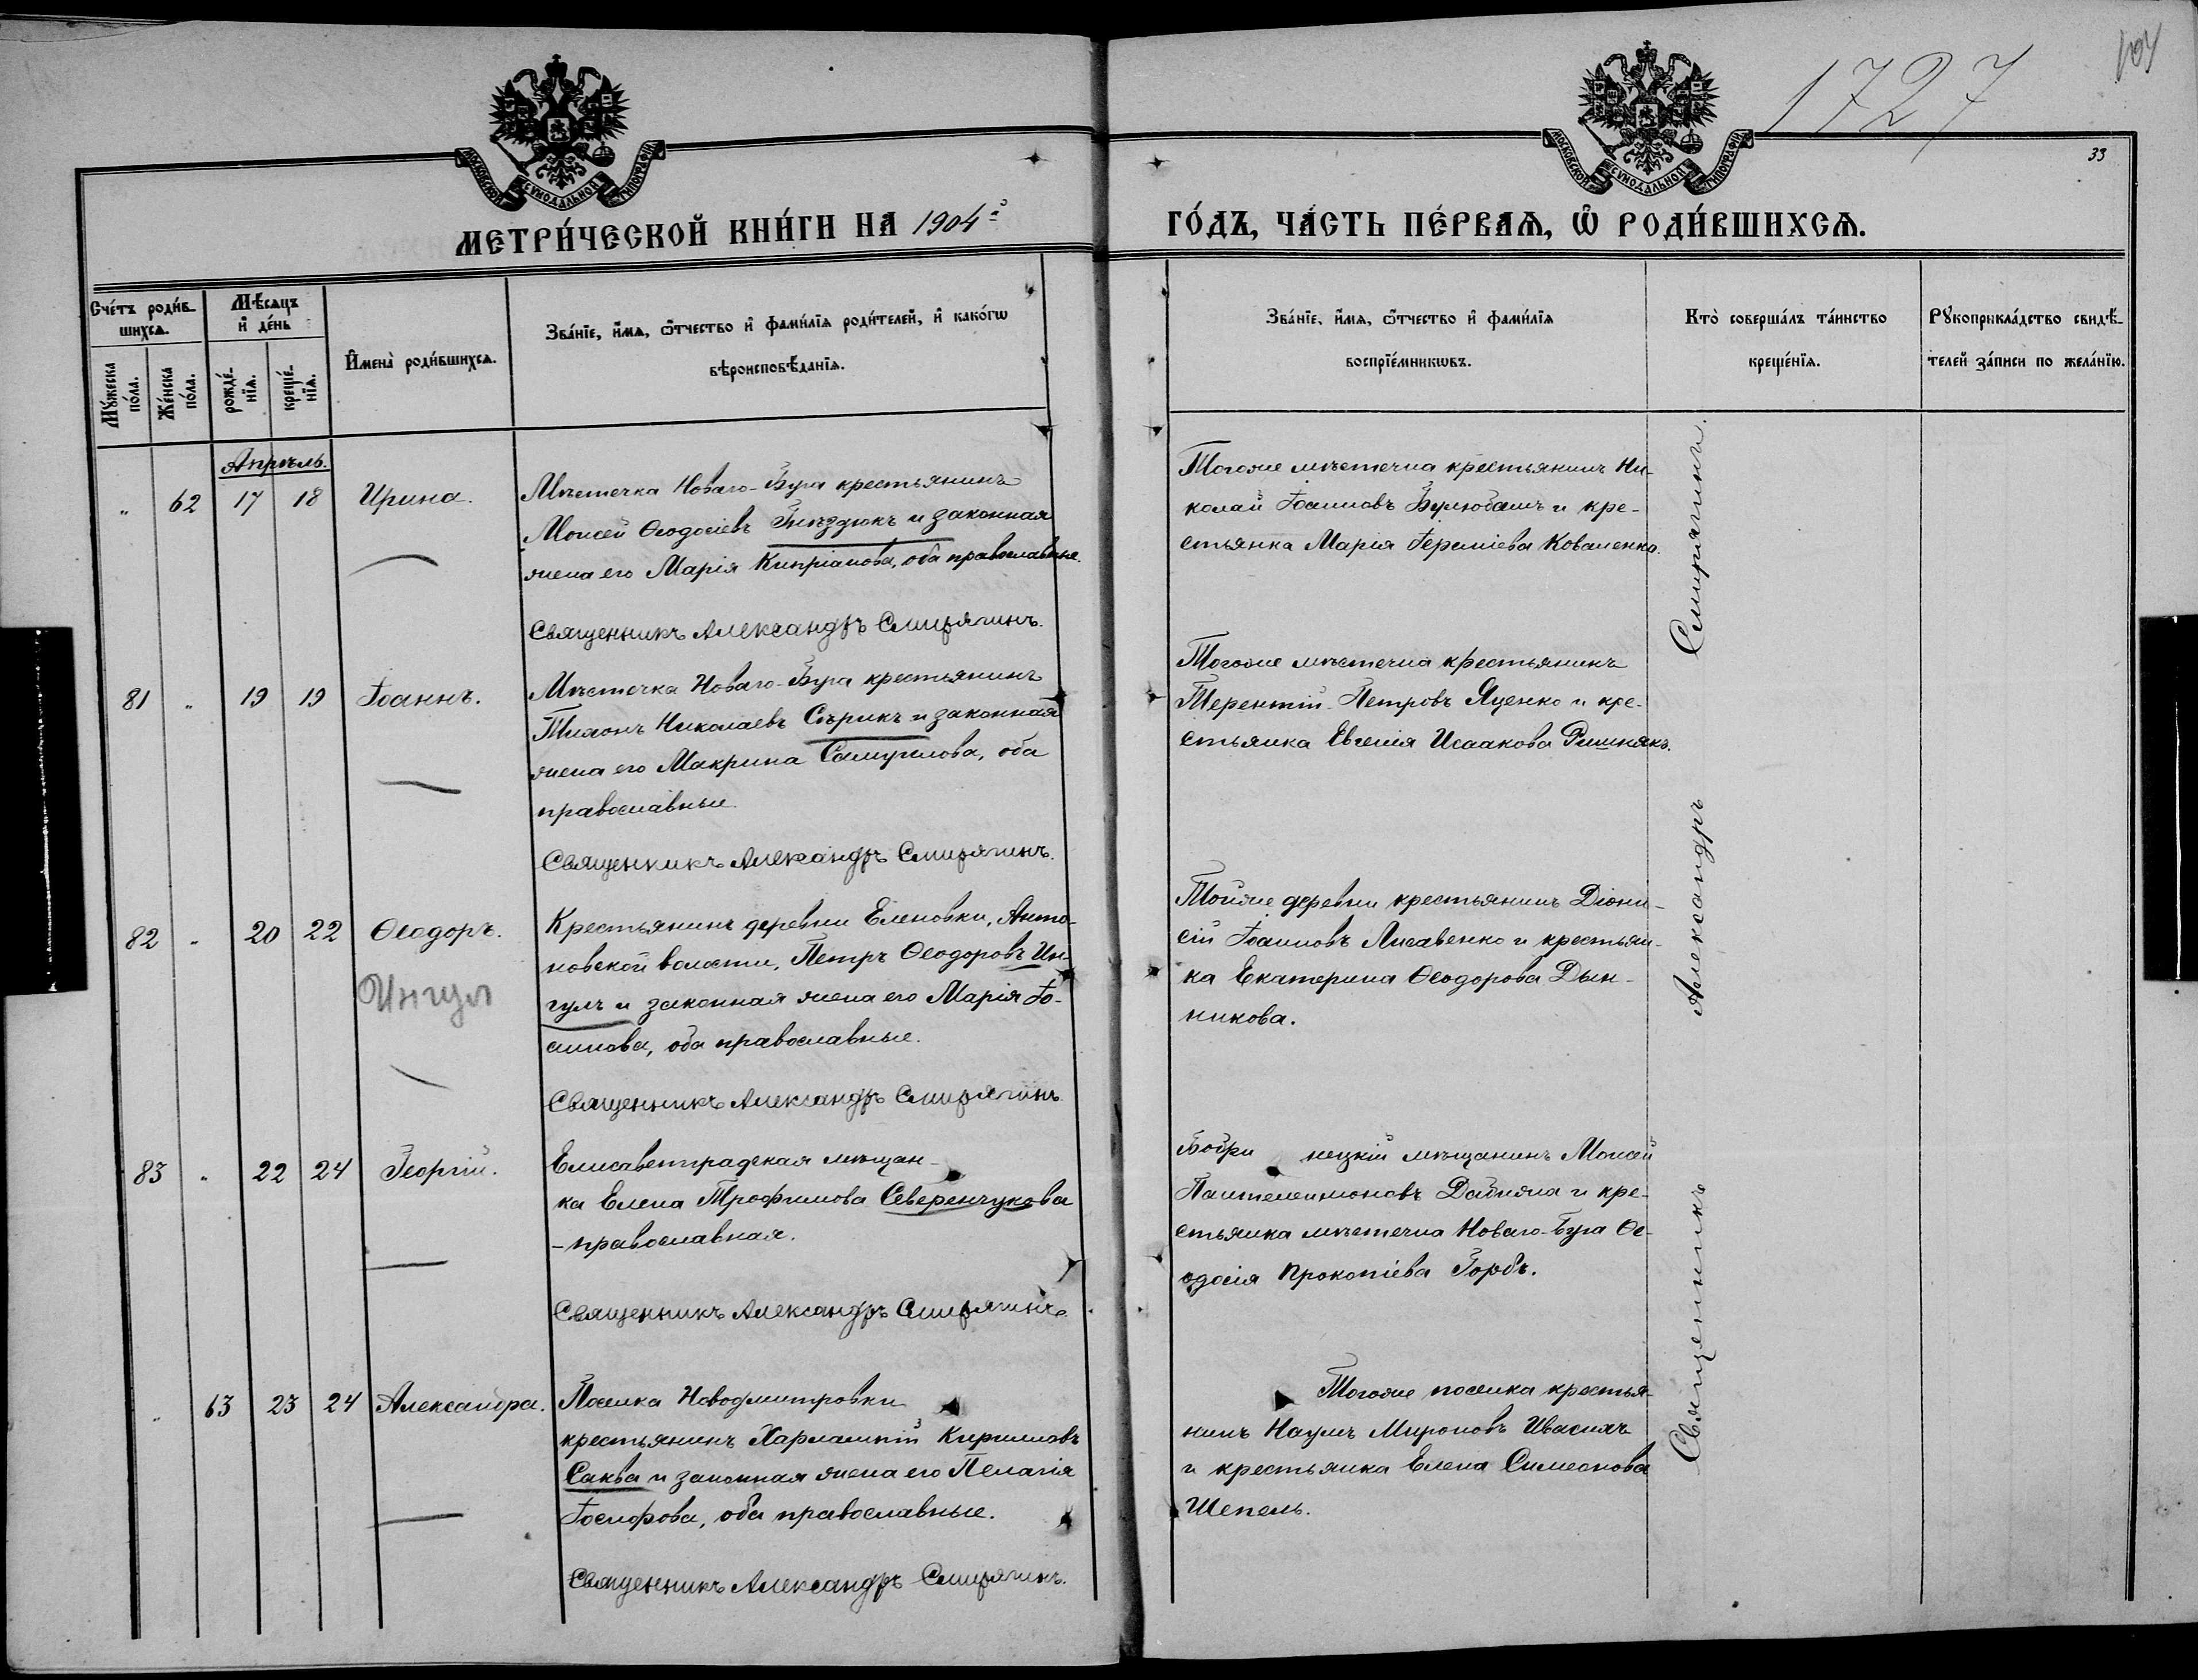 1727
104
33
МОСКОВСКОЙ СѴНОДАЛЬНОЙ ТИПОГРАФІИ
МОСКОВСКОЙ СѴНОДАЛЬНОЙ ТИПОГРАФІИ
МЕТРИ́ЧЕСКОЙ КНИ́ГИ НА 1904й
ГО́ДЪ, ЧА́СТЬ ПЕ́РВАѦ, Ѽ РОДИ́ВШИХСѦ.
Сче́тъ роди́в-
шихсѧ.
Мꙋ́жеска
по́ла.
Же́нска
по́ла.
Мѣ́сѧцъ
и҆ де́нь
рожде́-
нїѧ.
креще́-
нїѧ.
И҆мена̀ роди́вшихсѧ.
Зва́нїе, и҆́мѧ, ѻ҆́тчество и҆ фами́лїѧ роди́телей, и҆ како́гѡ
вѣроисповѣ́данїѧ.
Зва́нїе, и҆́мѧ, ѻ҆́тчество и҆ фами́лїѧ
воспрїе́мникѡвъ.
Кто̀ соверша́лъ та́инство
креще́нїѧ.
Рꙋкоприкла́дство свидѣ́-
телей за́писи по жела́нїю.
Апрѣль.
„ 62 17 18 Ирина.
Мѣстечка Новаго-Буга крестьянинъ
Моисей Ѳеодосіевъ Гнѣздюкъ и законная
жена его Марія Кипріанова, оба православные.
Священникъ Александръ Смирягинъ.
Тогоже мѣстечка крестьянинъ Ни-
колай Іоанновъ Булюбашъ и кре-
стьянка Марія Іереміева Коваленко.
81 „ 19 19 Іоаннъ.
Мѣстечка Новаго-Буга крестьянинъ
Тихонъ Николаевъ Сѣрикъ и законная
жена его Макрина Самуилова, оба
православные
Священникъ Александръ Смирягинъ.
Тогоже мѣстечка крестьянинъ
Терентій Петровъ Яценко и кре-
стьянка Евгенія Исаакова
82 „ 20 22 Ѳеодоръ.
Ингул
Крестьянинъ деревни Еленовки, Анто-
новской волости, Петръ Ѳеодоровъ Ин-
гулъ и законная жена его Марія Іо-
аннова, оба православные.
Священникъ Александръ Смирягинъ
Тойже деревни крестьянинъ Діони-
сій Іоанновъ Лисавенко и крестьян-
ка Екатерина Ѳеодорова Дын-
никова.
83 „ 22 24 Георгій.
Елисаветградская мѣщан-
ка Елена Трофимова Северенчукова
- православная.
Священникъ Александръ Смирягинъ
Бобри нецкій мѣщанинъ Моисей
Пантелеимоновъ и кре-
стьянка мѣстечка Новаго-Буга Ѳе-
одосія Прокопіева Горбъ.
„ 63 23 24 Александра.
Поселка Новодмитровки
крестьянинъ Харлампій Кирилловъ
Саква и законная жена его Пелагія
Іосифова, оба православные.
Священникъ Александръ Смирягинъ.
Тогоже поселка крестья-
нинъ Наумъ Мироновъ Ивасихъ
и крестьянка Елена Симеонова
Шепель.
Священникъ Александръ Смирягинъ.